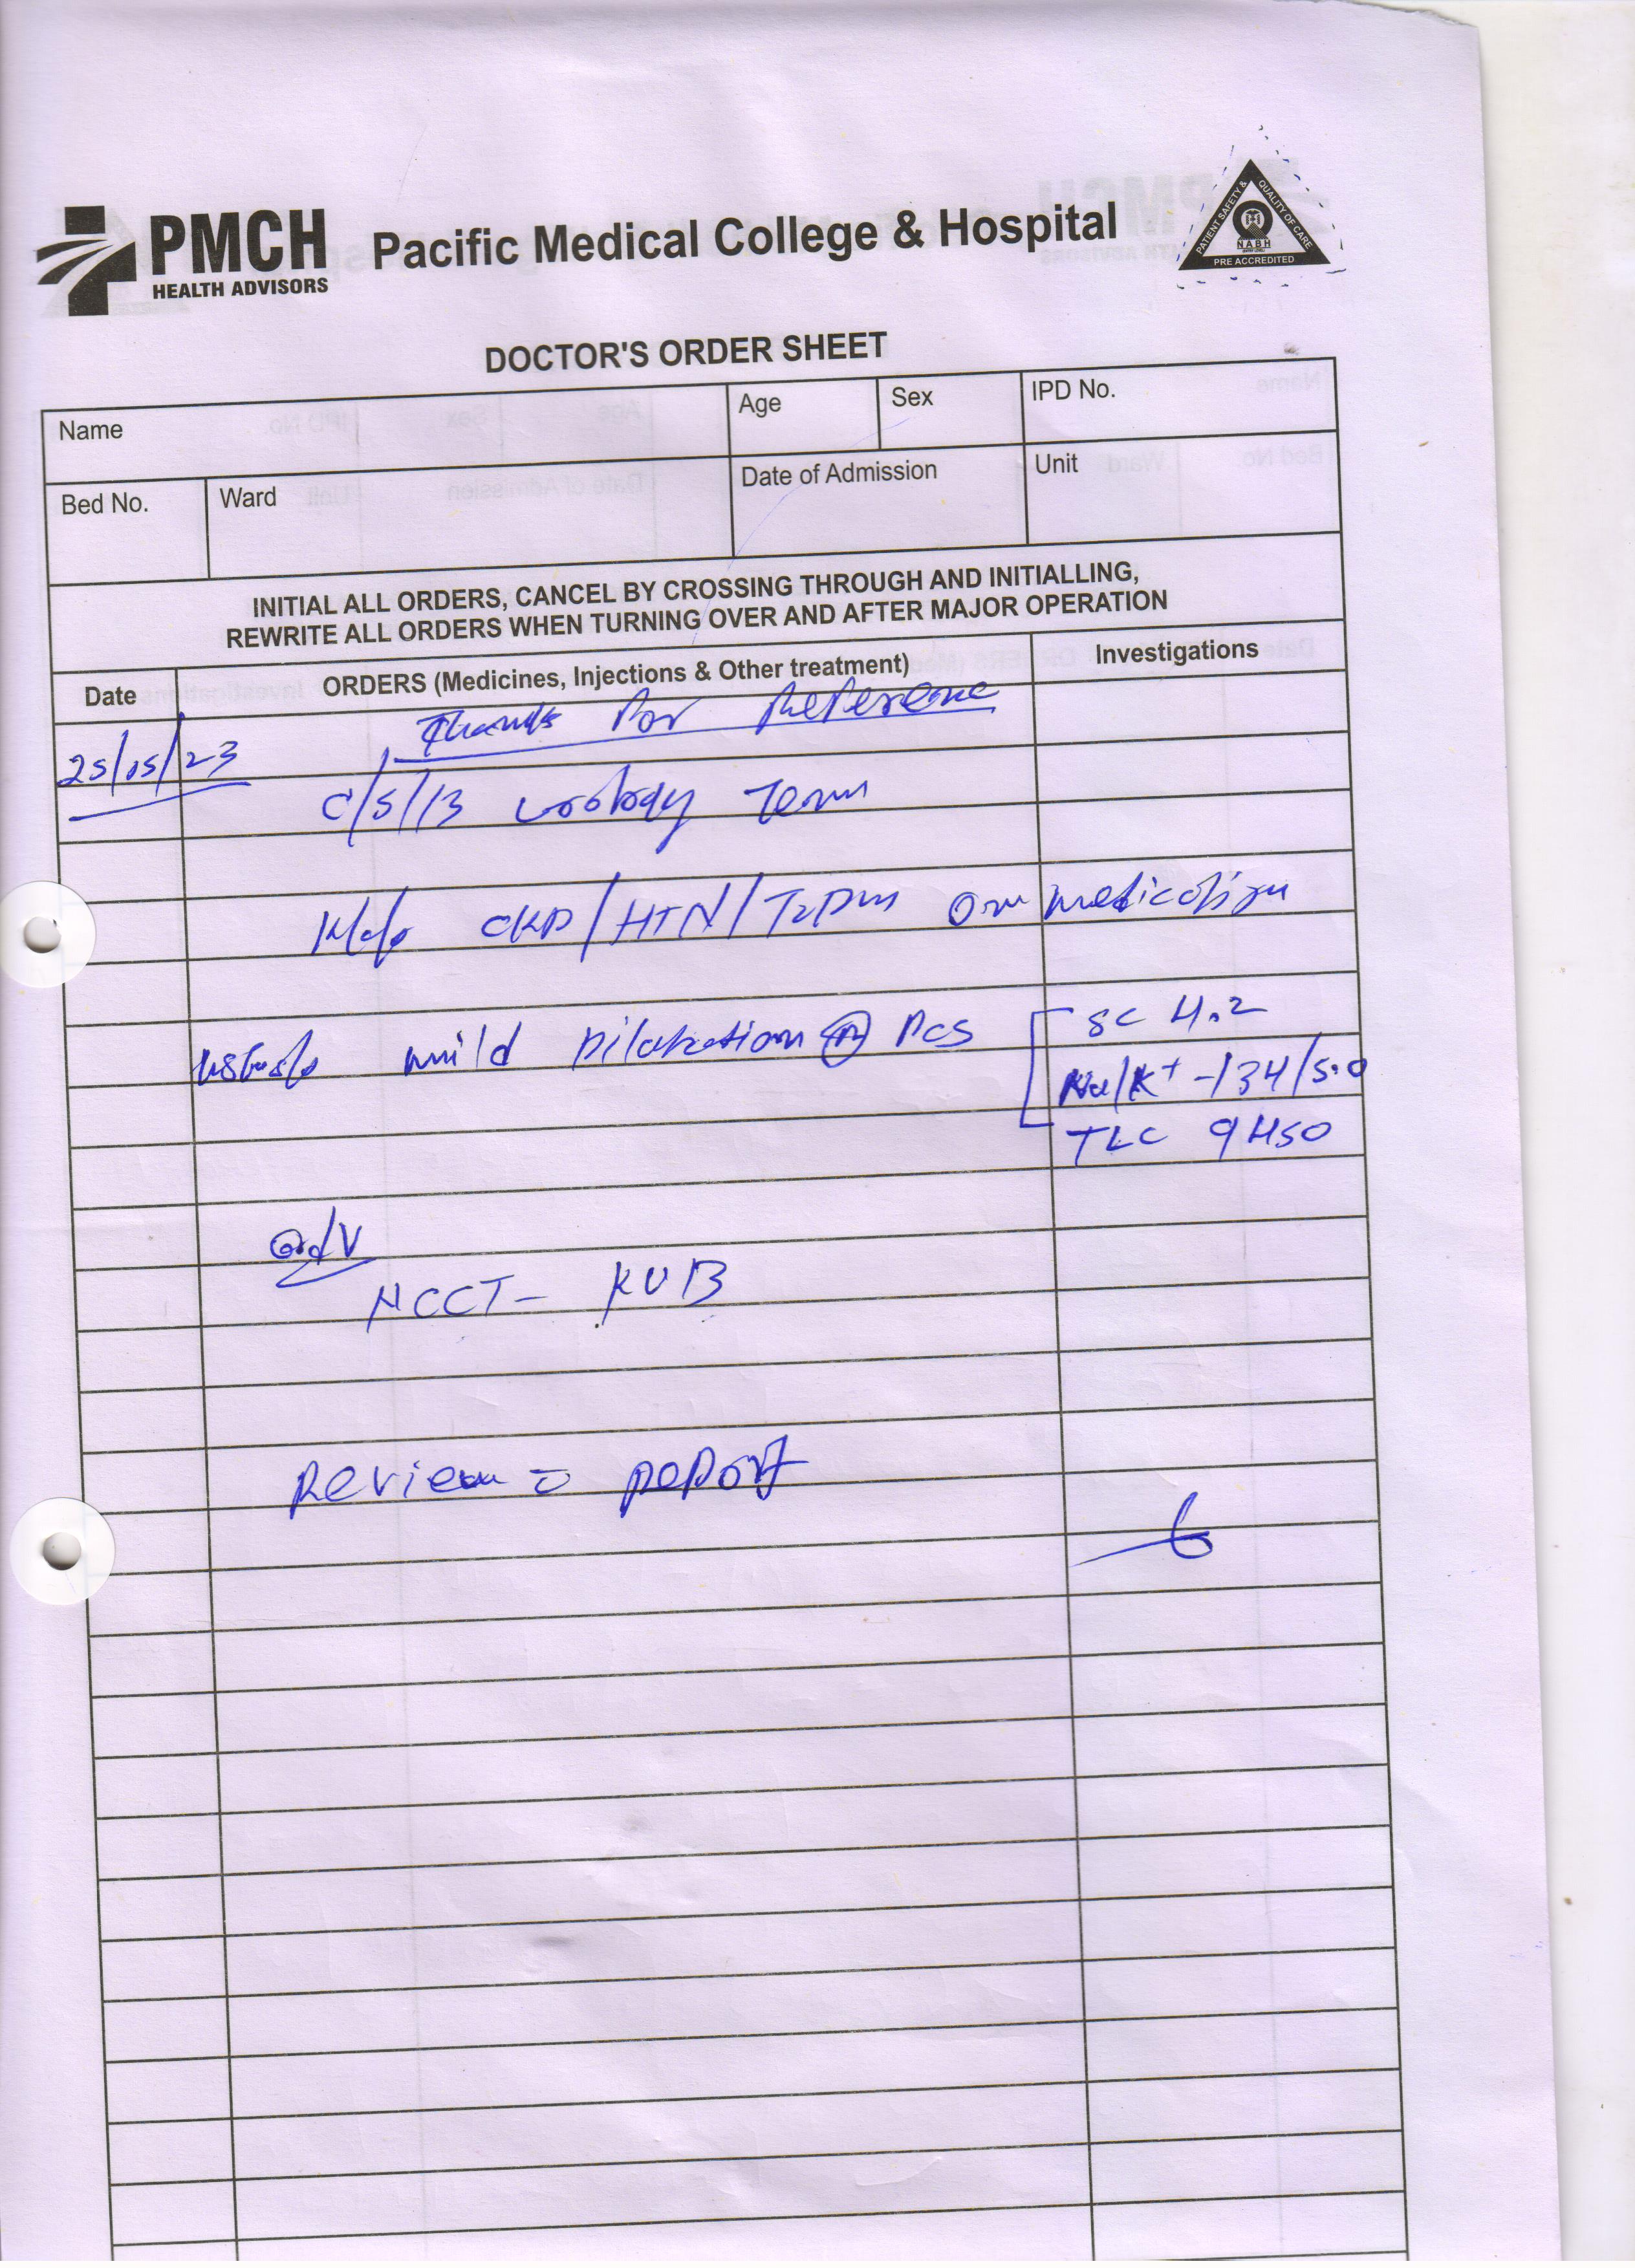 PMCH
HEALTH ADVISORS
Pacific Medical College & Hospital
PATIENT SAFETY & QUALITY OF CARE
NABH
PRE ACCREDITED
DOCTOR'S ORDER SHEET
Name Age Sex IPD No.
Bed No. Ward Date of Admission Unit
INITIAL ALL ORDERS, CANCEL BY CROSSING THROUGH AND INITIALLING,
REWRITE ALL ORDERS WHEN TURNING OVER AND AFTER MAJOR OPERATION
Date ORDERS (Medicines, Injections & Other treatment) Investigations
Thanks for Reference
25/05/23
C/S/B Urology Team
K/c/o CKD/HTN/T2DM on medication
mild Dilatation (R) PCS SC 4.2
Na/K+ - 134/5.0
TLC 9450
adv
NCCT - KUB
Review = report